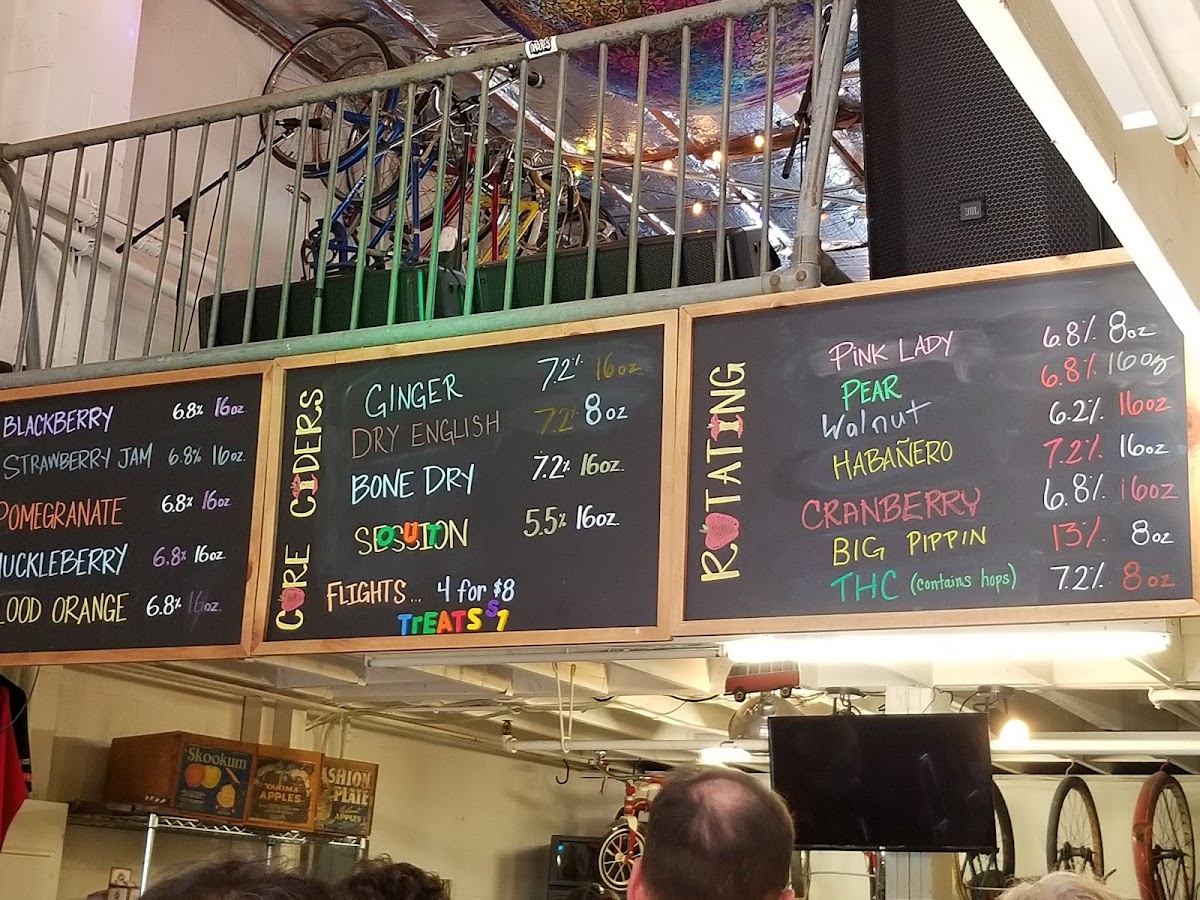 JBL
BLACKBERRY 6.8% 16oz
STRAWBERRY JAM 6.8% 16oz.
POMEGRANATE 6.8% 16oz
HUCKLEBERRY 6.8% 16oz
LOOD ORANGE 6.8% 16oz.
CORE CIDERS
GINGER 7.2% 16oz
DRY ENGLISH 7.2% 8oz
BONE DRY 7.2% 16oz.
SESSION 5.5% 16oz.
OUT
FLIGHTS... 4 for $8
TrEATS $1
ROTATING
PINK LADY 6.8% 8oz
PEAR 6.8% 16oz
Walnut 6.2% 16oz
HABAÑERO 7.2% 16oz
CRANBERRY 6.8% 16oz
BIG PIPPIN 13% 8oz
THC (contains hops) 7.2% 8oz
Skookum
YAKIMA
APPLES
FASHION
PLATE
APPLES